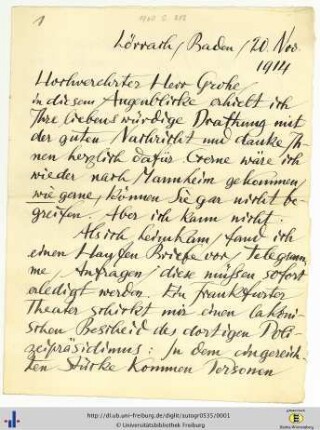 1
Lörrach/Baden/20. Nov.
1914
Hochverehrter Herr Grohe/
in diesem Augenblicke erhielt ich
Ihre liebenswürdige Drahtung mit
der guten Nachricht und danke Ih-
nen herzlich dafür. Gerne wäre ich
wieder nach Mannheim gekommen/
wie gerne, können Sie gar nicht be-
greifen. Aber ich kann nicht.
Als ich heimkam/ fand ich
einen Haufen Briefe vor/ Telegram-
me/ Anfragen/ diese müßen sofort
erledigt werden. Ein Frankfurter
Theater schickt mir einen lakoni-
schen Bescheid des dortigen Poli-
zeipräsidiums: In dem eingereich-
ten Stücke kommen Personen
http://dl.ub.uni-freiburg.de/diglit/autogr0535/0001
© Universitätsbibliothek Freiburg